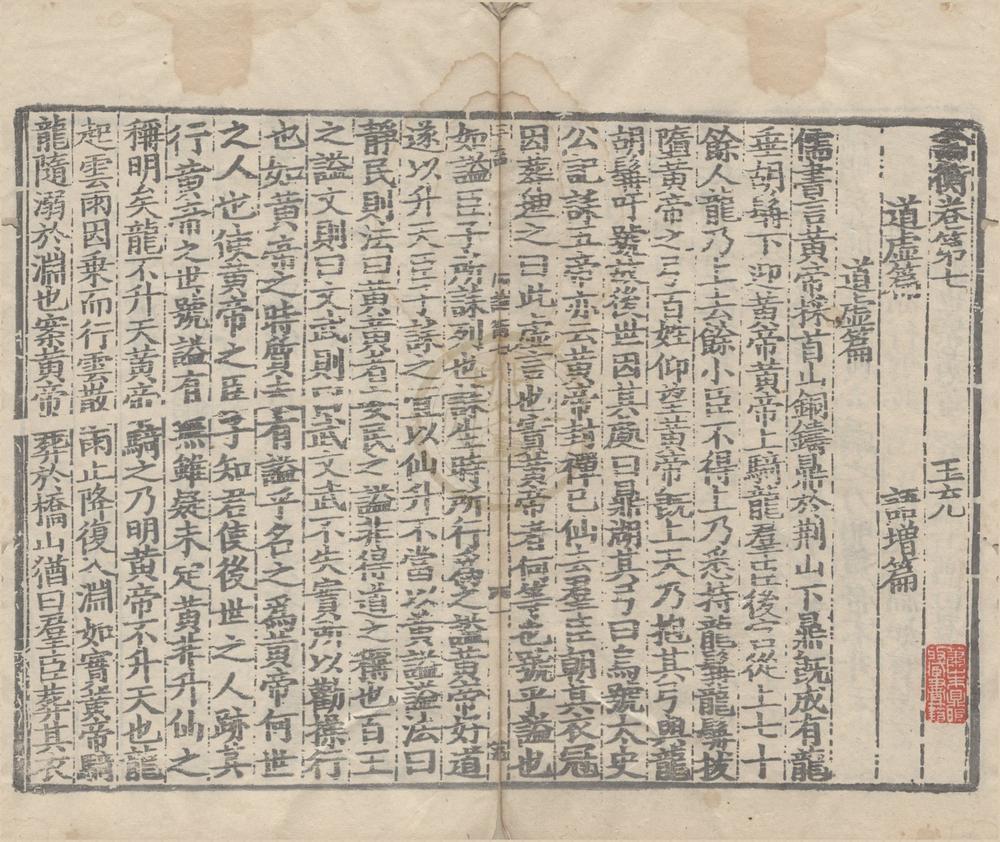 論衡卷第七
王充
道虛篇 語增篇
道虛篇
儒書言黃帝採首山銅鑄鼎於荆山下鼎旣成有龍
垂胡髯下迎黃帝黃帝上騎龍羣臣後宮從上七十
餘人龍乃上去餘小臣不得上乃悉持龍髯龍髯拔
墮黃帝之弓百姓仰望黃帝旣上天乃抱其弓與龍
胡髯吁號故後世因其處曰鼎湖其弓曰烏號太史
公記誄五帝亦云黃帝封禪已仙去羣臣朝其衣冠
因葬埋之曰此虛言也實黃帝者何等也號乎謚也
如謚臣子所誄列也誄生時所行爲之謚黃帝好道
遂以升天臣子誄之宜以仙升不當以黃謚謚法曰
靜民則法曰黃黃者安民之謚非得道之稱也百王
之謚文則曰文武則曰武文武不失實所以勸操行
也如黃帝之時質未有謚乎名之爲黃帝何世
之人也使黃帝之臣子知君使後世之人跡其
行黃帝之世號謚有無雖疑未定黃非升仙之
稱明矣龍不升天黃帝騎之乃明黃帝不升天也龍
起雲雨因乘而行雲散雨止降復入淵如實黃帝騎
龍隨溺於淵也案黃帝葬於橋山猶曰羣臣葬其衣